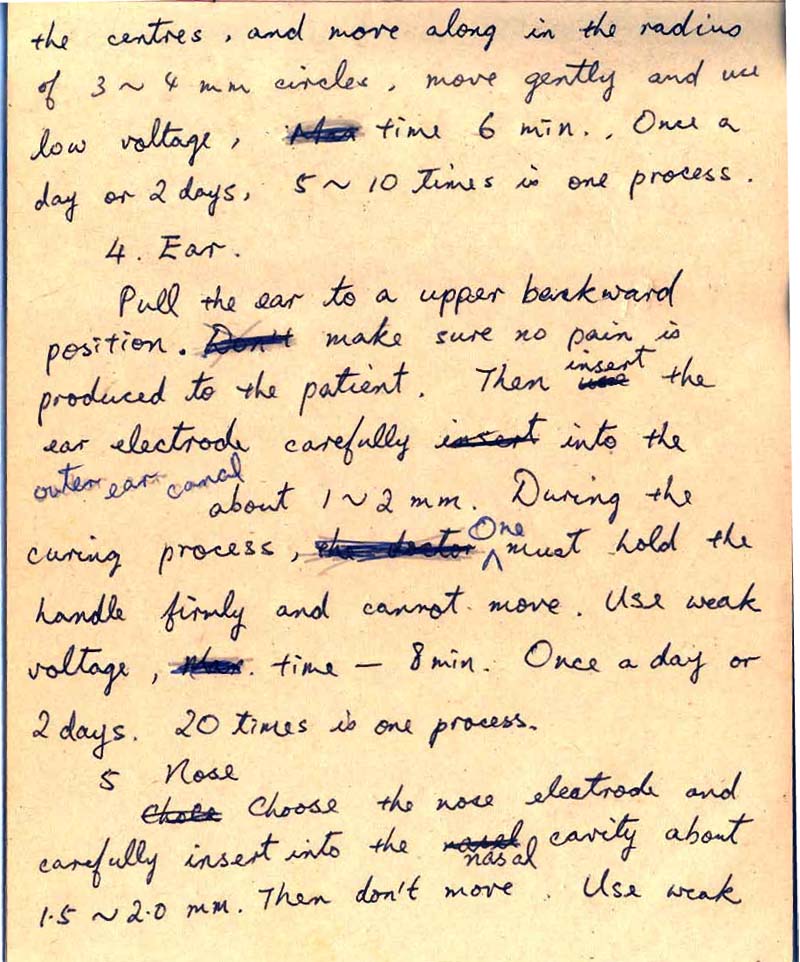 the centres, and move along in the radius
of 3 ~ 4 mm circles, move gently and use
low voltage, Max time 6 min., Once a
day or 2 days, 5 ~ 10 times is one process.
4. Ear.
Pull the ear to a upper backward
position. Don't make sure no pain is
produced to the patient. Then use insert the
ear electrode carefully insert into the
outer ear canal about 1 ~ 2 mm. During the
curing process, the doctor One must hold the
handle firmly and cannot move. Use weak
voltage, Max. time – 8 min. Once a day or
2 days. 20 times is one process.
5 Nose
Chose Choose the nose electrode and
carefully insert into the nasal nasal cavity about
1.5 ~ 2.0 mm. Then don't move. Use weak